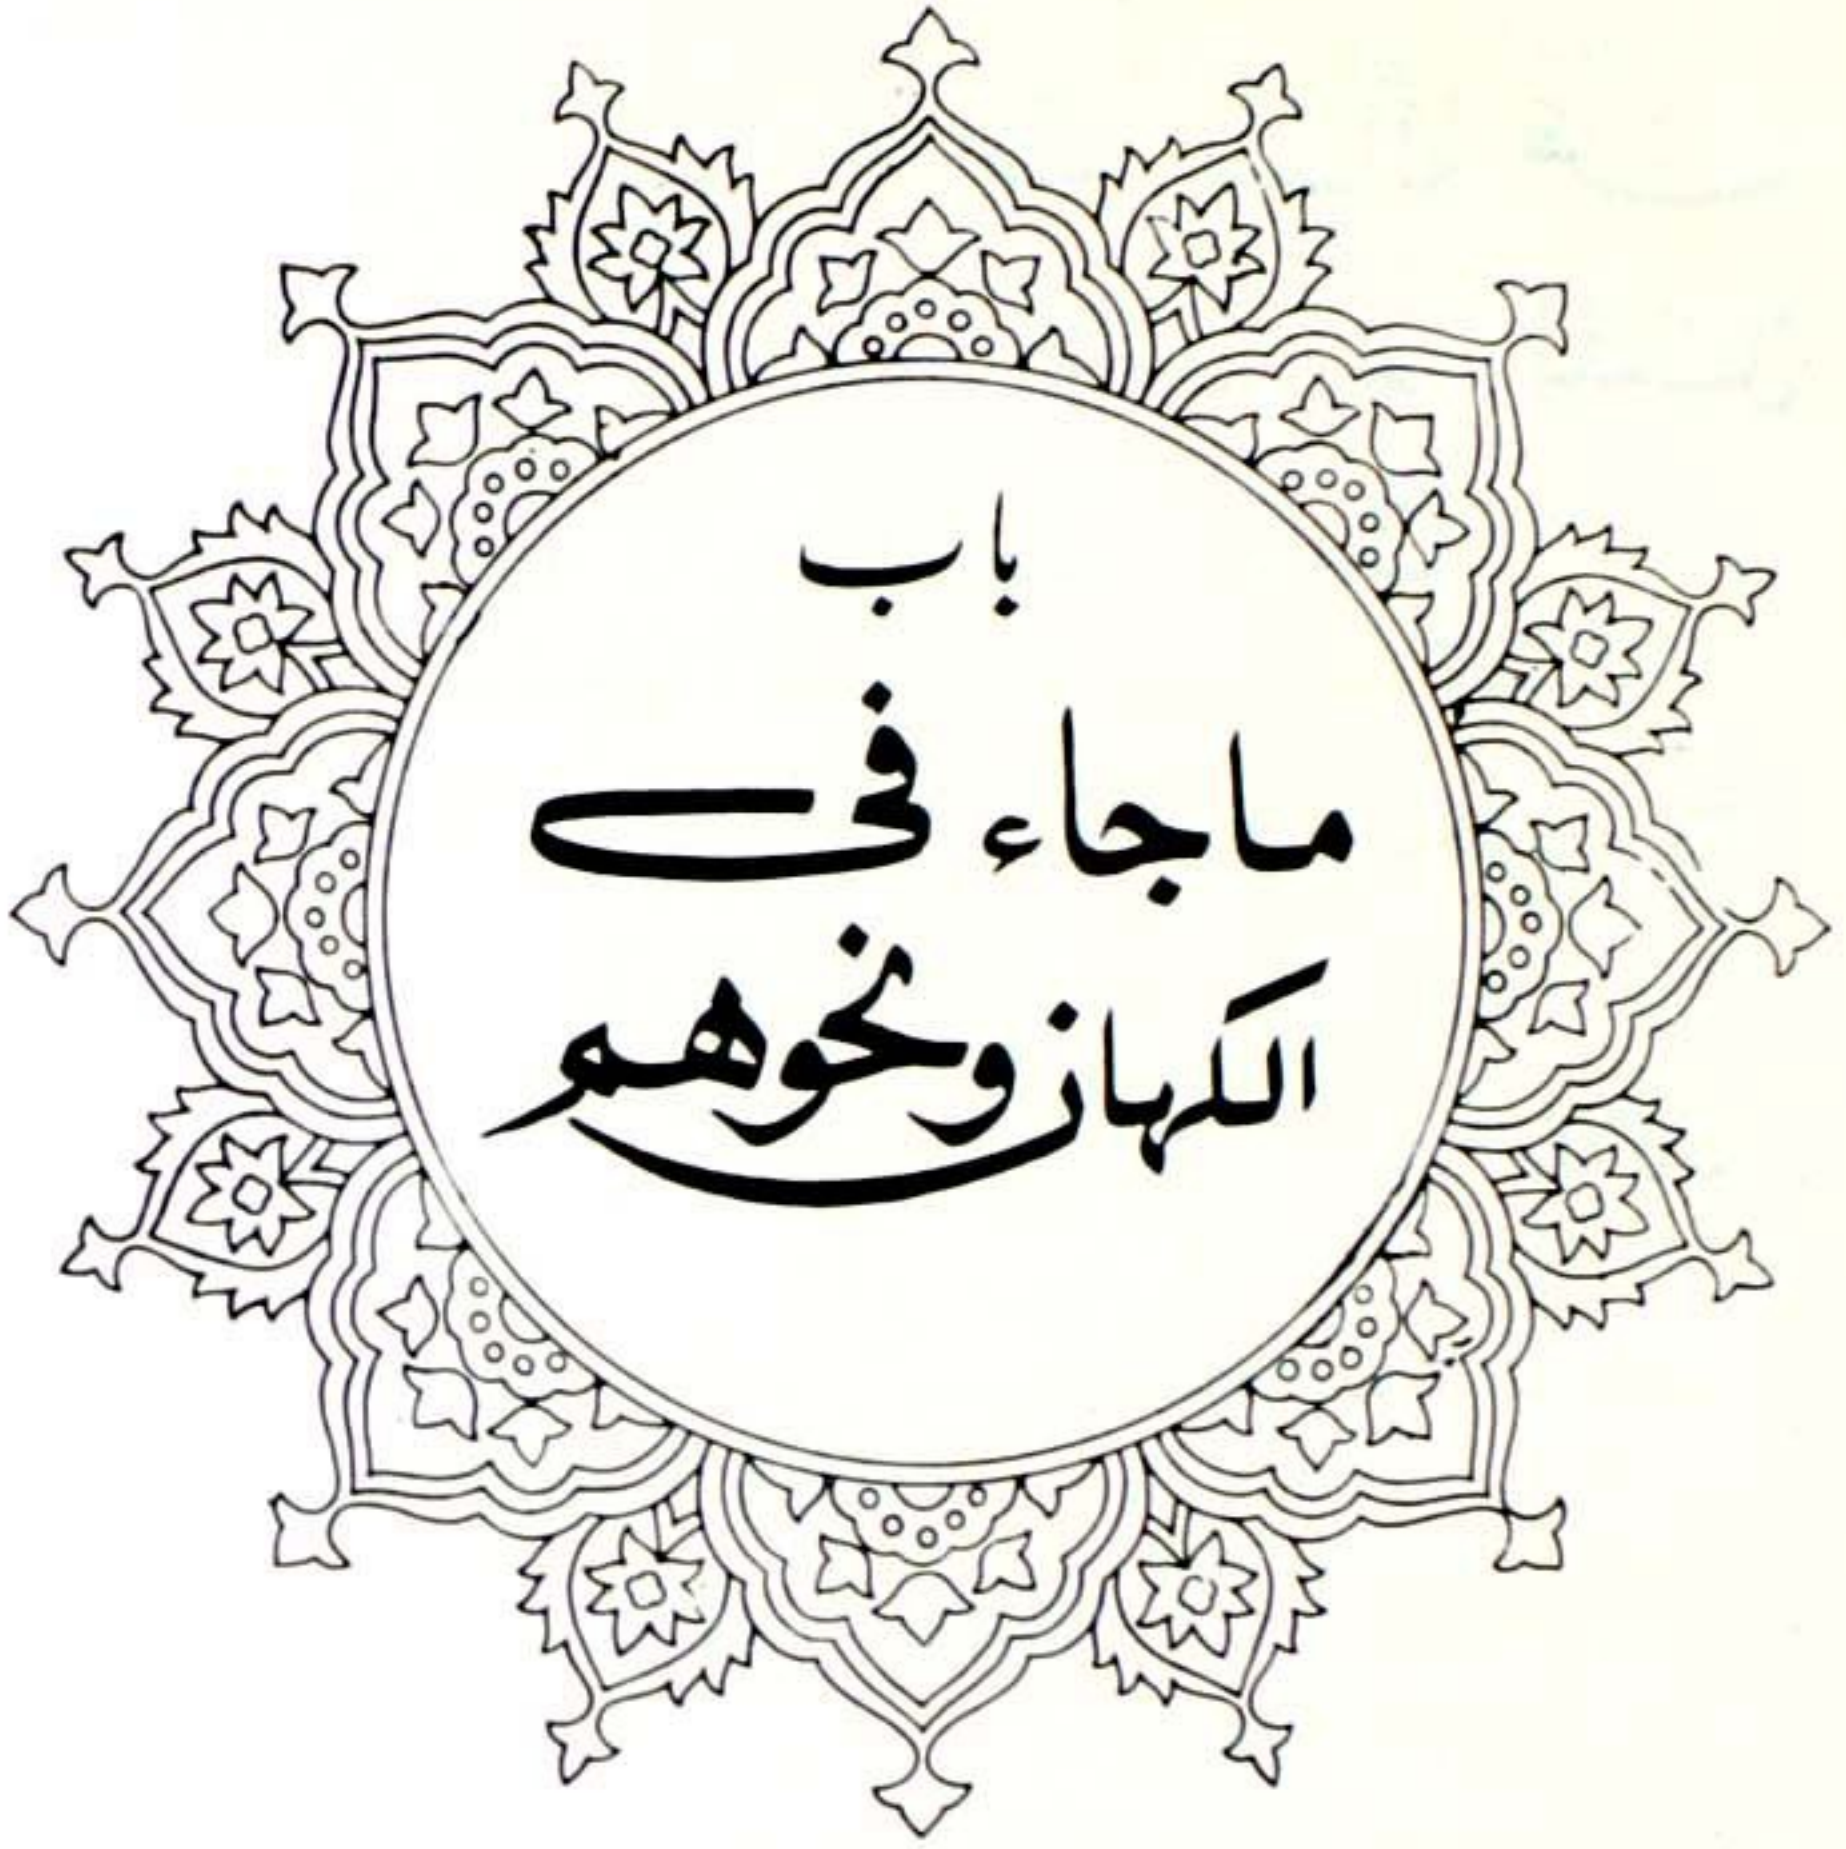 باب
ما جاء فى
الكهان ونحوهم